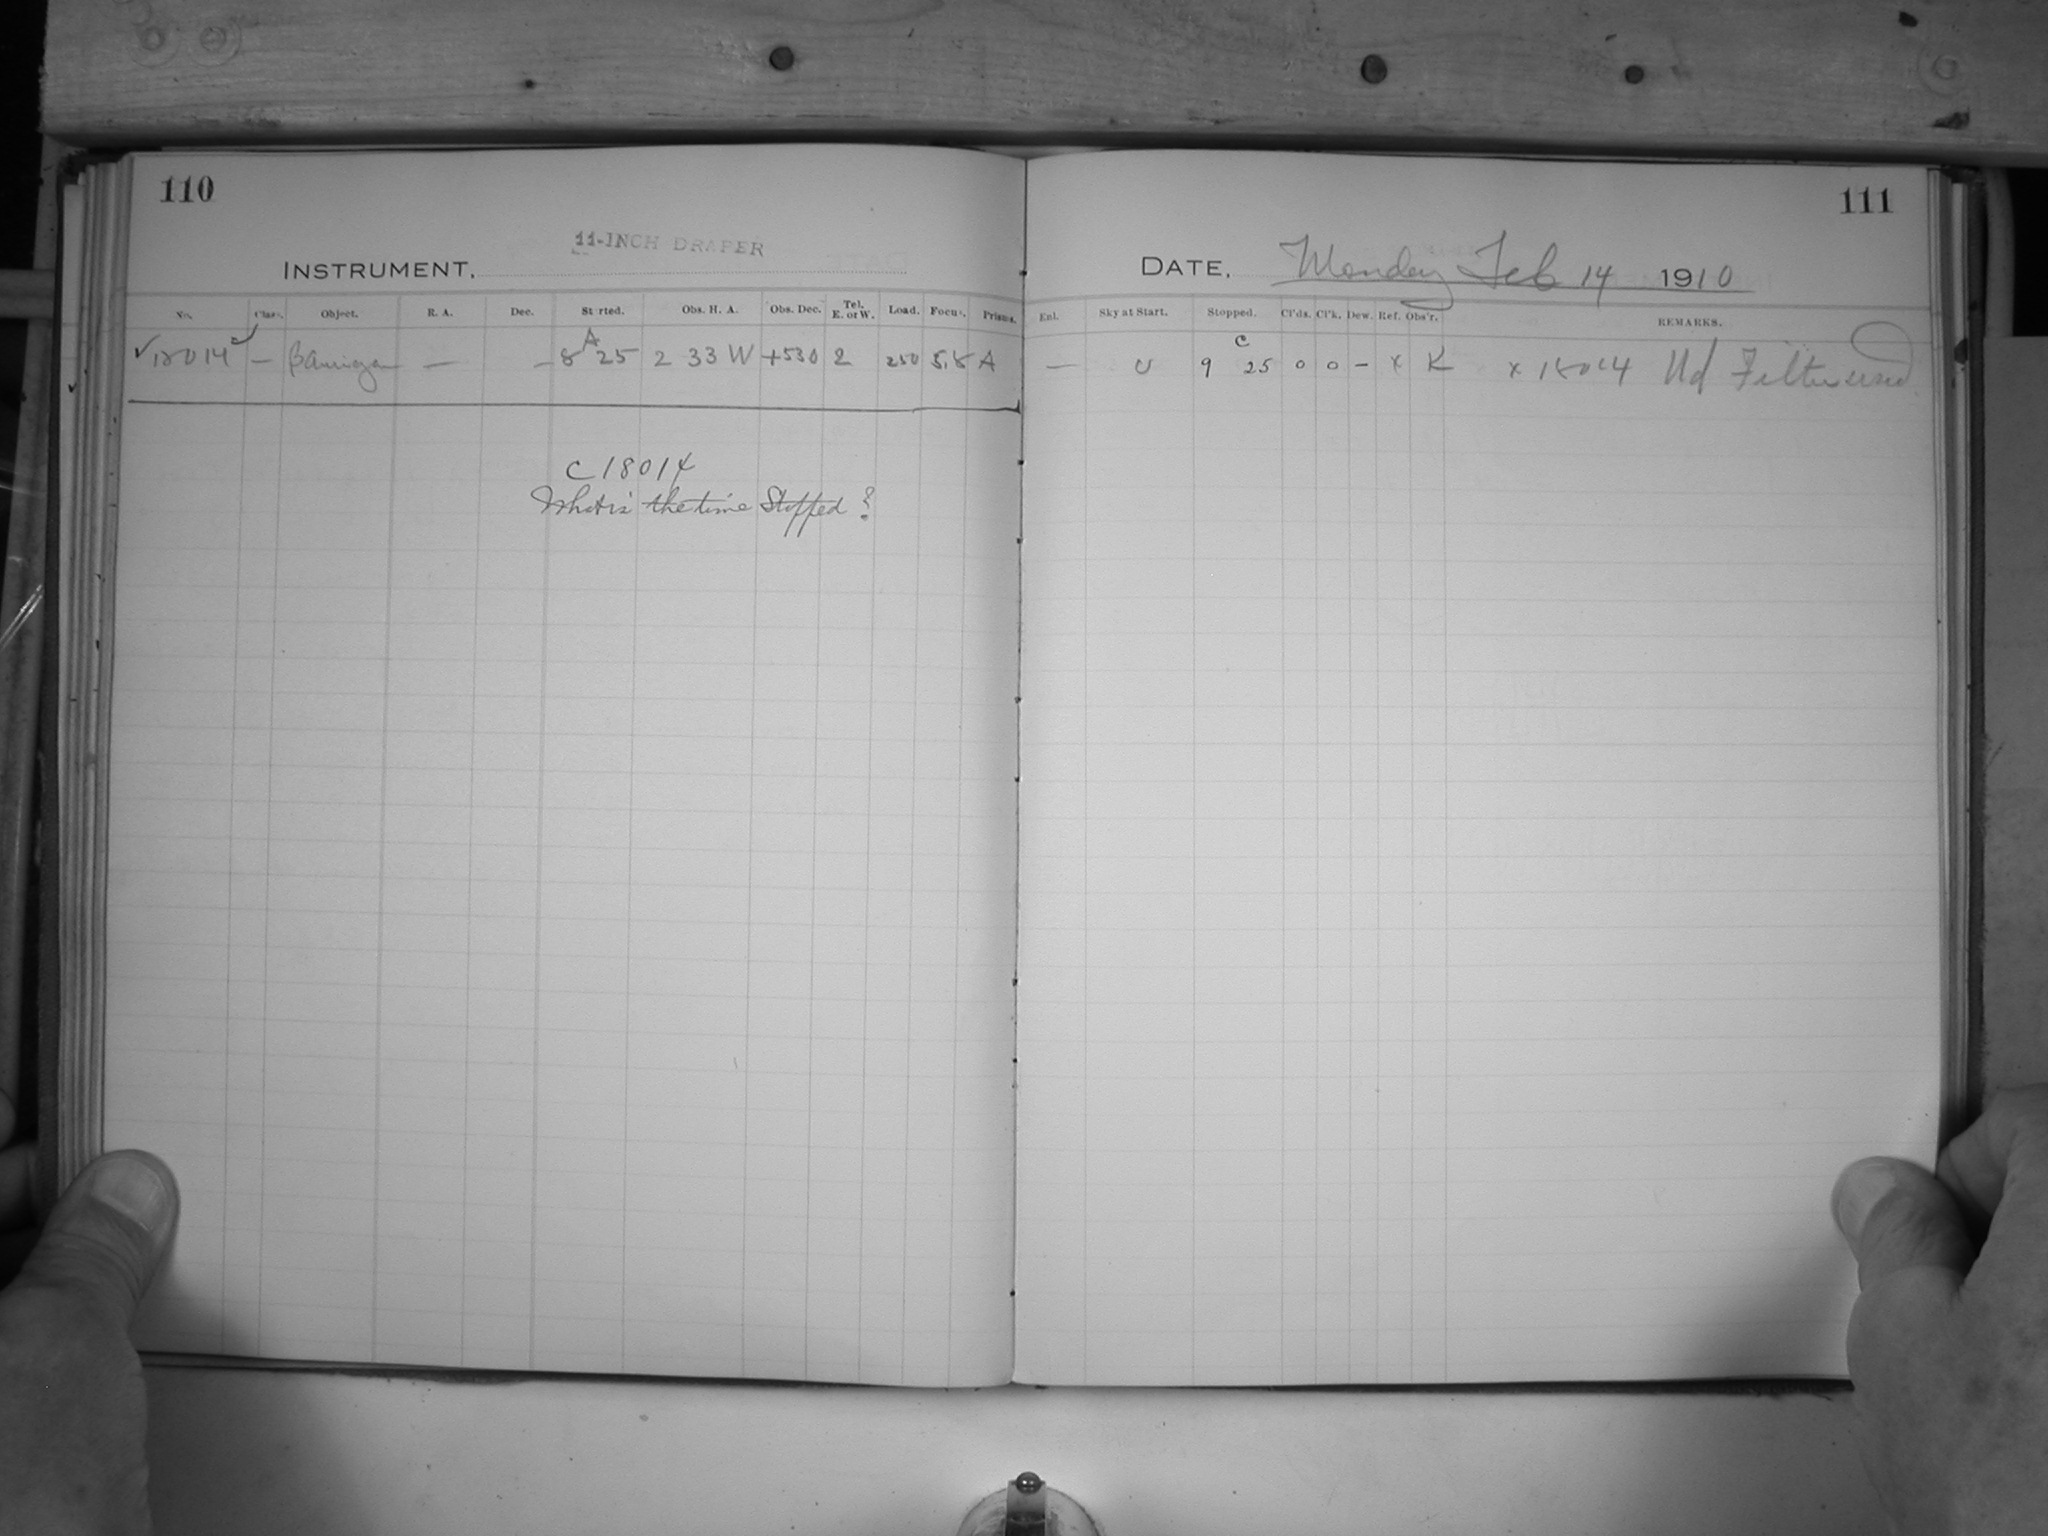 110
11-INCH DRAPER
INSTRUMENT.
No. Class. Object. R. A. Dec. Started. Obs. H. A. Obs. Dec. Tel. E. or W. Load. Focus. Prisms.
A
✓ 18014 — — — 8 25 2 33 W +530 2 250 5.8 A
C 18014
What is the time Stopped?
111
DATE. Monday Feb 14 1910
Enl. Sky at Start. Stopped. Cl'ds. Cl'k. Dew. Ref. Obs'r. REMARKS.
C
— 0 9 25 0 0 – x K x 18014 Filter used